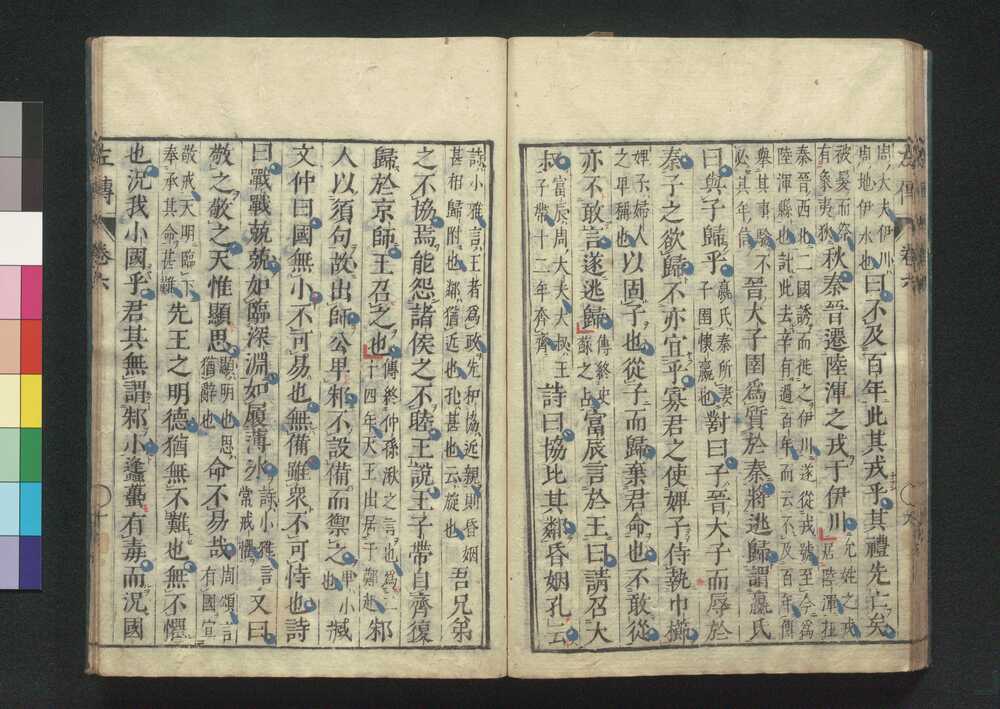 左傳 卷六 九
周大夫伊川
周地伊水也
曰不及百年此其戎乎其禮先亡矣
被髮而祭
有象夷狄
秋秦晉遷陸渾之戎于伊川
允姓之戎
居陸渾在
秦晉西北二國誘而徙之伊川遂從戎號至今爲
陸渾縣也計此去辛有過百年而云不及百年傳
舉其事驗不
必其年信
晉大子圉爲質於秦將逃歸謂嬴氏
曰與子歸乎
嬴氏秦所妻
子圉懷嬴也
對曰子晉大子而辱於
秦子之欲歸不亦宜乎寡君之使婢子侍執巾櫛
婢子婦人
之卑稱也
以固子也從子而歸棄君命也不敢從
亦不敢言遂逃歸
傳終史
蘇之占
富辰言於王曰請召大
叔
富辰周大夫大叔王
子帶十二年奔齊
詩曰協比其鄰昏姻孔云
詩小雅言王者爲政先和協近親則昏姻
甚相歸附也鄰猶近也孔甚也云旋也
吾兄弟
之不協焉能怨諸侯之不睦王說王子帶自齊復
歸於京師王召之也
傳終仲孫湫之言也爲二
十四年天王出居于鄭起
邾
人以須句故出師公卑邾不設備而禦之
卑小
也
臧
文仲曰國無小不可易也無備雖衆不可恃也詩
曰戰戰兢兢如臨深淵如履薄冰
詩小雅言
常戒懼
又曰
敬之敬之天惟顯思
顯明也思
猶辭也
命不易哉
周頌言
有國宜
敬戒天明臨下
奉承其命甚難
先王之明德猶無不難也無不懼
也況我小國乎君其無謂邾小蠭蠆有毒而況國
左傳 卷六 十